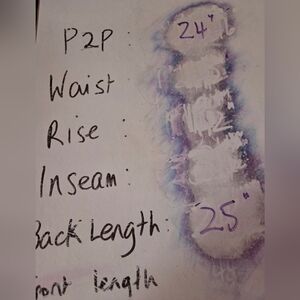 P2P : 24"
Waist
Rise :
Inseam :
Back Length : 25"
Front length